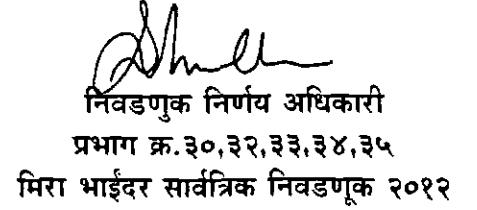 निवडणुक निर्णय अधिकारी
प्रभाग क्र.३०,३२,३३,३४,३५
मिरा भाईंदर सार्वत्रिक निवडणूक २०१२